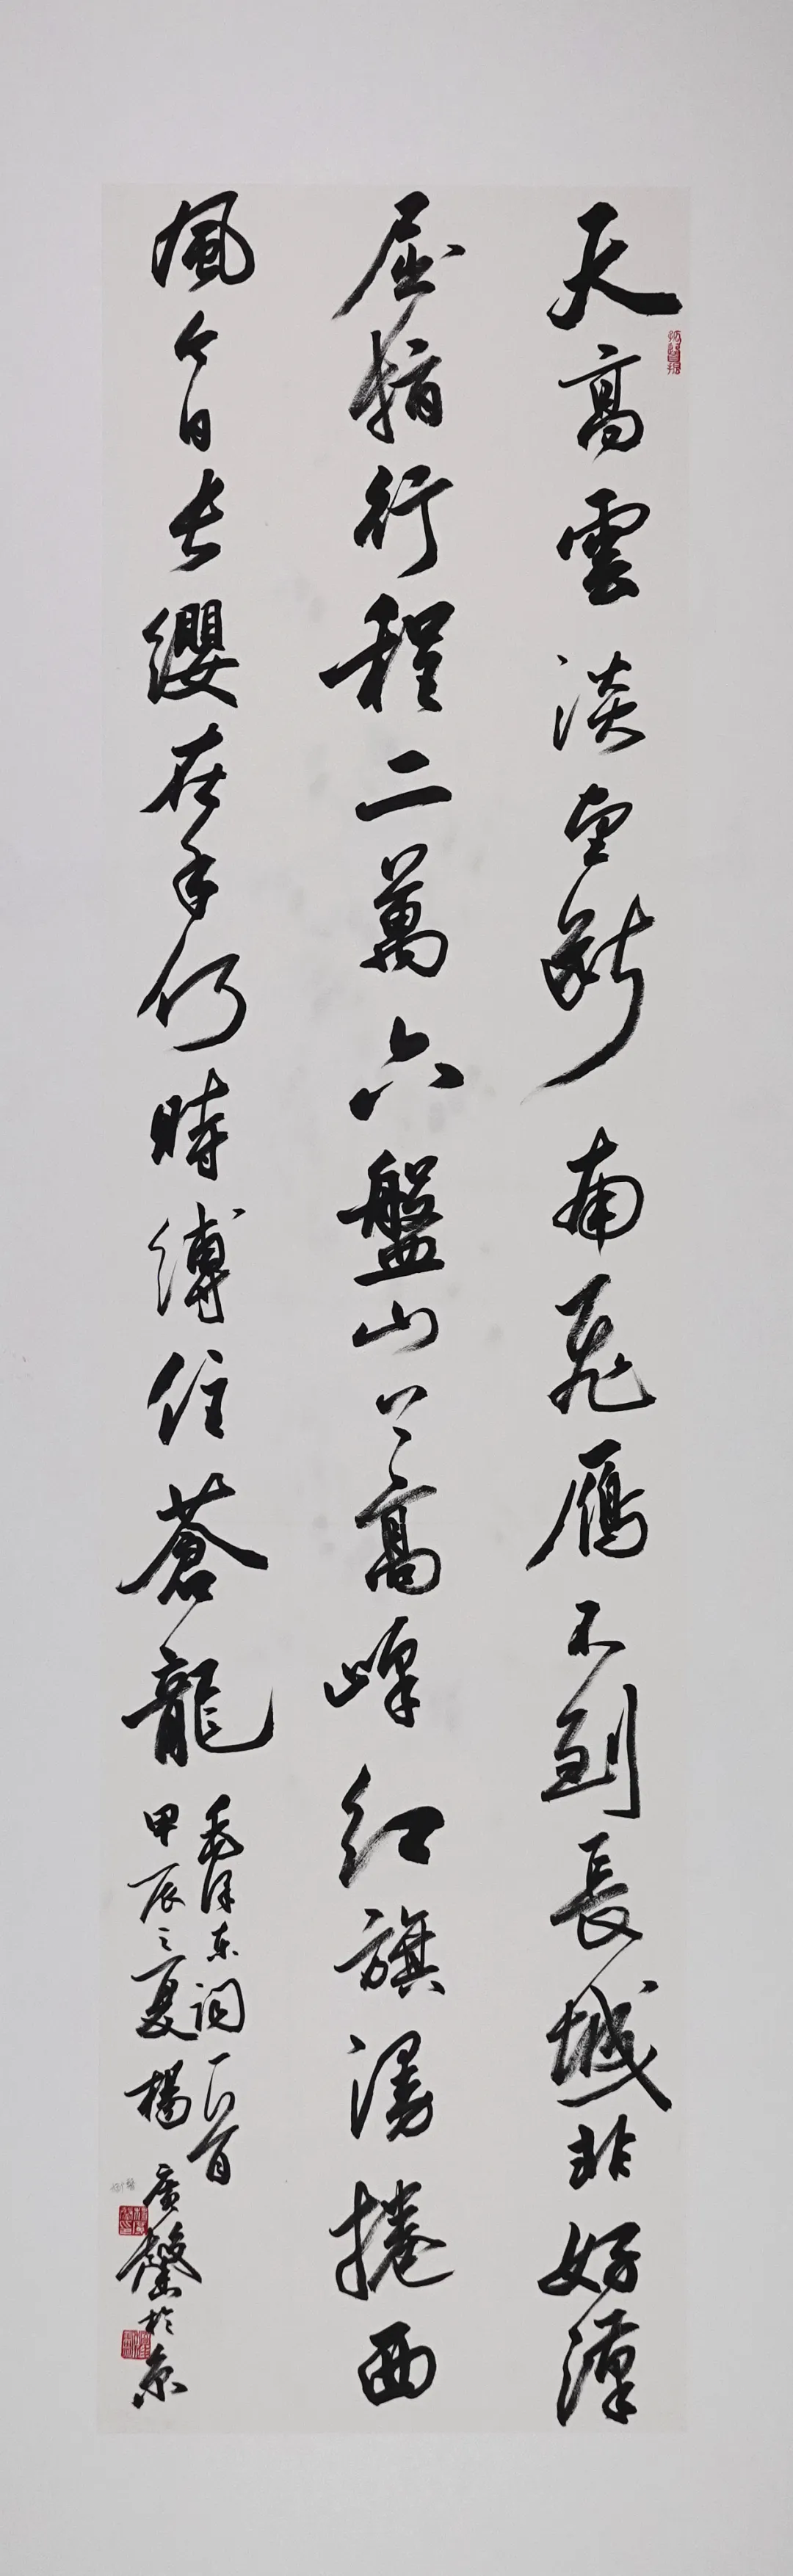 天高雲淡望斷南飛雁不到長城非好漢
屈指行程二萬六盤山上高峰紅旗漫捲西
風今日長纓在手何時縛住蒼龍
毛泽东词一首
甲辰之夏楊廣馨於京